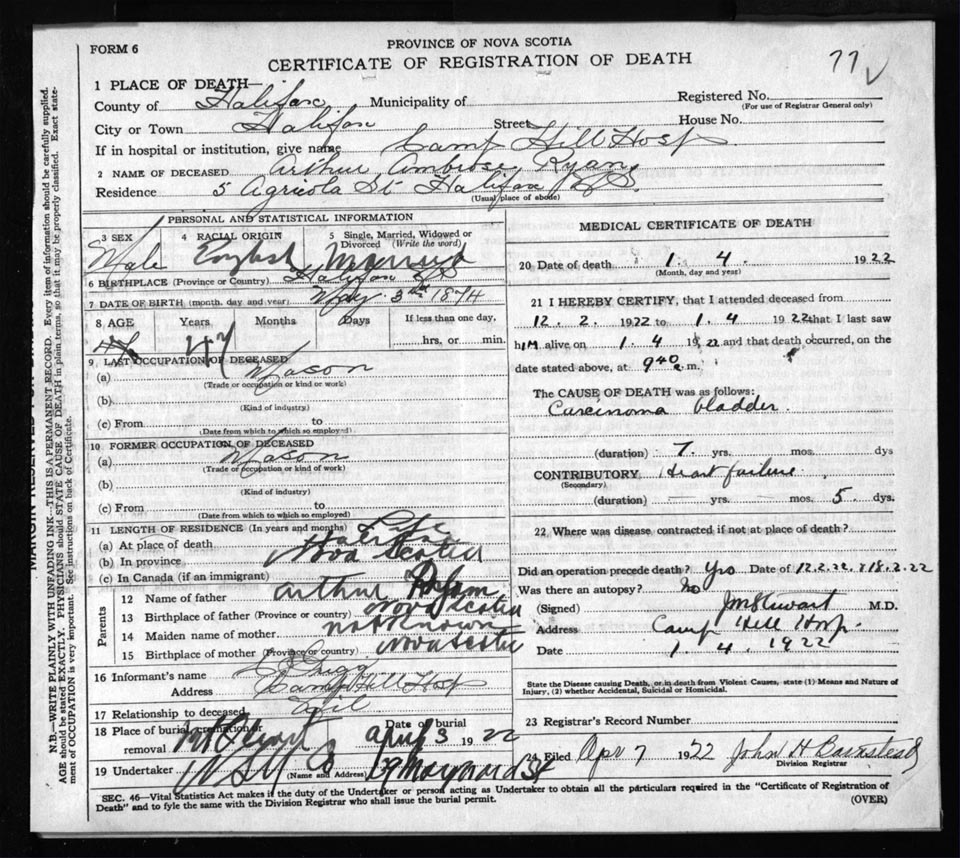 FORM 6
PROVINCE OF NOVA SCOTIA
CERTIFICATE OF REGISTRATION OF DEATH
77
1 PLACE OF DEATH—
County of Halifax Municipality of
Registered No.
(For use of Registrar General only)
City or Town Halifax Street House No.
If in hospital or institution, give name Camp Hill Hosp
2 NAME OF DECEASED Arthur Ambrose Ryan
Residence 5 Agricola St Halifax N.S.
(Usual place of abode)
PERSONAL AND STATISTICAL INFORMATION
3 SEX
Male
4 RACIAL ORIGIN
English
5 Single, Married, Widowed or Divorced (Write the word)
Married
6 BIRTHPLACE (Province or Country) Halifax NS
7 DATE OF BIRTH (month, day and year) May 3rd 1874
8 AGE Years Months Days If less than one day,
47 hrs. or min.
9 LAST OCCUPATION OF DECEASED
(a) Mason
(Trade or occupation or kind of work)
(b)
(Kind of industry)
(c) From to
(Date from which to which so employed)
10 FORMER OCCUPATION OF DECEASED
(a) Mason
(Trade or occupation or kind of work)
(b)
(Kind of industry)
(c) From to
(Date from which to which so employed)
11 LENGTH OF RESIDENCE (In years and months) Life
(a) At place of death Halifax
(b) In province Nova Scotia
(c) In Canada (if an immigrant)
Parents
12 Name of father Arthur Ryan
13 Birthplace of father (Province or country) Nova Scotia
14 Maiden name of mother not known
15 Birthplace of mother (Province or country) Nova Scotia
16 Informant's name
Address Camp Hill Hosp
17 Relationship to deceased
18 Place of burial, cremation or removal Date of burial
april 3 1922
19 Undertaker 19 Maynard St
(Name and Address)
MEDICAL CERTIFICATE OF DEATH
20 Date of death 1. 4. 1922
(Month, day and year)
21 I HEREBY CERTIFY, that I attended deceased from
12. 2. 1922 to 1. 4 1922 that I last saw
him alive on 1. 4 1922 and that death occurred, on the
date stated above, at 9 40 a.m.
The CAUSE OF DEATH was as follows:
Carcinoma bladder.
(duration) 7. yrs. mos. dys
CONTRIBUTORY Heart failure
(Secondary)
(duration) yrs. mos. 5 dys.
22 Where was disease contracted if not at place of death?
Did an operation precede death? Yes Date of 12.2.22. & 18.2.22
Was there an autopsy? No
(Signed) JM Stewart M.D.
Address Camp Hill Hosp.
Date 1. 4. 1922
State the Disease causing Death, or in death from Violent Causes, state (1) Means and Nature of
Injury, (2) whether Accidental, Suicidal or Homicidal.
23 Registrar's Record Number
24 Filed Apr 7 1922 John H Barnstead
Division Registrar
SEC. 46—Vital Statistics Act makes it the duty of the Undertaker or person acting as Undertaker to obtain all the particulars required in the "Certificate of Registration of
Death" and to fyle the same with the Division Registrar who shall issue the burial permit.
(OVER)
N.B.—WRITE PLAINLY WITH UNFADING INK—THIS IS A PERMANENT RECORD. Every item of information should be carefully supplied.
AGE should be stated EXACTLY. PHYSICIANS should STATE CAUSE OF DEATH in plain terms, so that it may be properly classified. Exact state-
ment of OCCUPATION is very important. See instructions on back of Certificate.